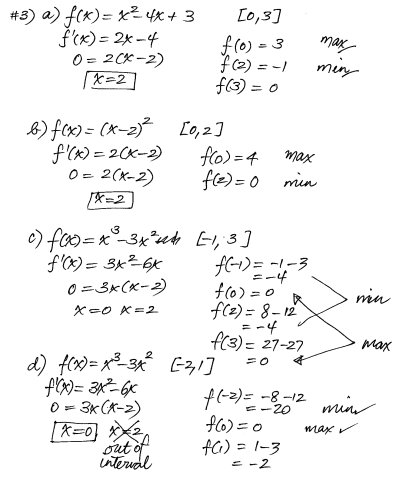 #3) a) f(x) = x² - 4x + 3 [0,3]
f'(x) = 2x - 4
0 = 2(x-2)
x = 2
f(0) = 3 max
f(2) = -1 min
f(3) = 0
b) f(x) = (x-2)² [0,2]
f'(x) = 2(x-2)
0 = 2(x-2)
x = 2
f(0) = 4 max
f(2) = 0 min
c) f(x) = x³ - 3x² [-1, 3]
f'(x) = 3x² - 6x
0 = 3x(x-2)
x = 0 x = 2
f(-1) = -1 - 3
= -4
f(0) = 0
f(2) = 8 - 12
= -4
f(3) = 27 - 27
= 0
min
max
d) f(x) = x³ - 3x² [-2,1]
f'(x) = 3x² - 6x
0 = 3x(x-2)
x = 0 x = 2
out of
interval
f(-2) = -8 - 12
= -20 min ✓
f(0) = 0 max ✓
f(1) = 1 - 3
= -2